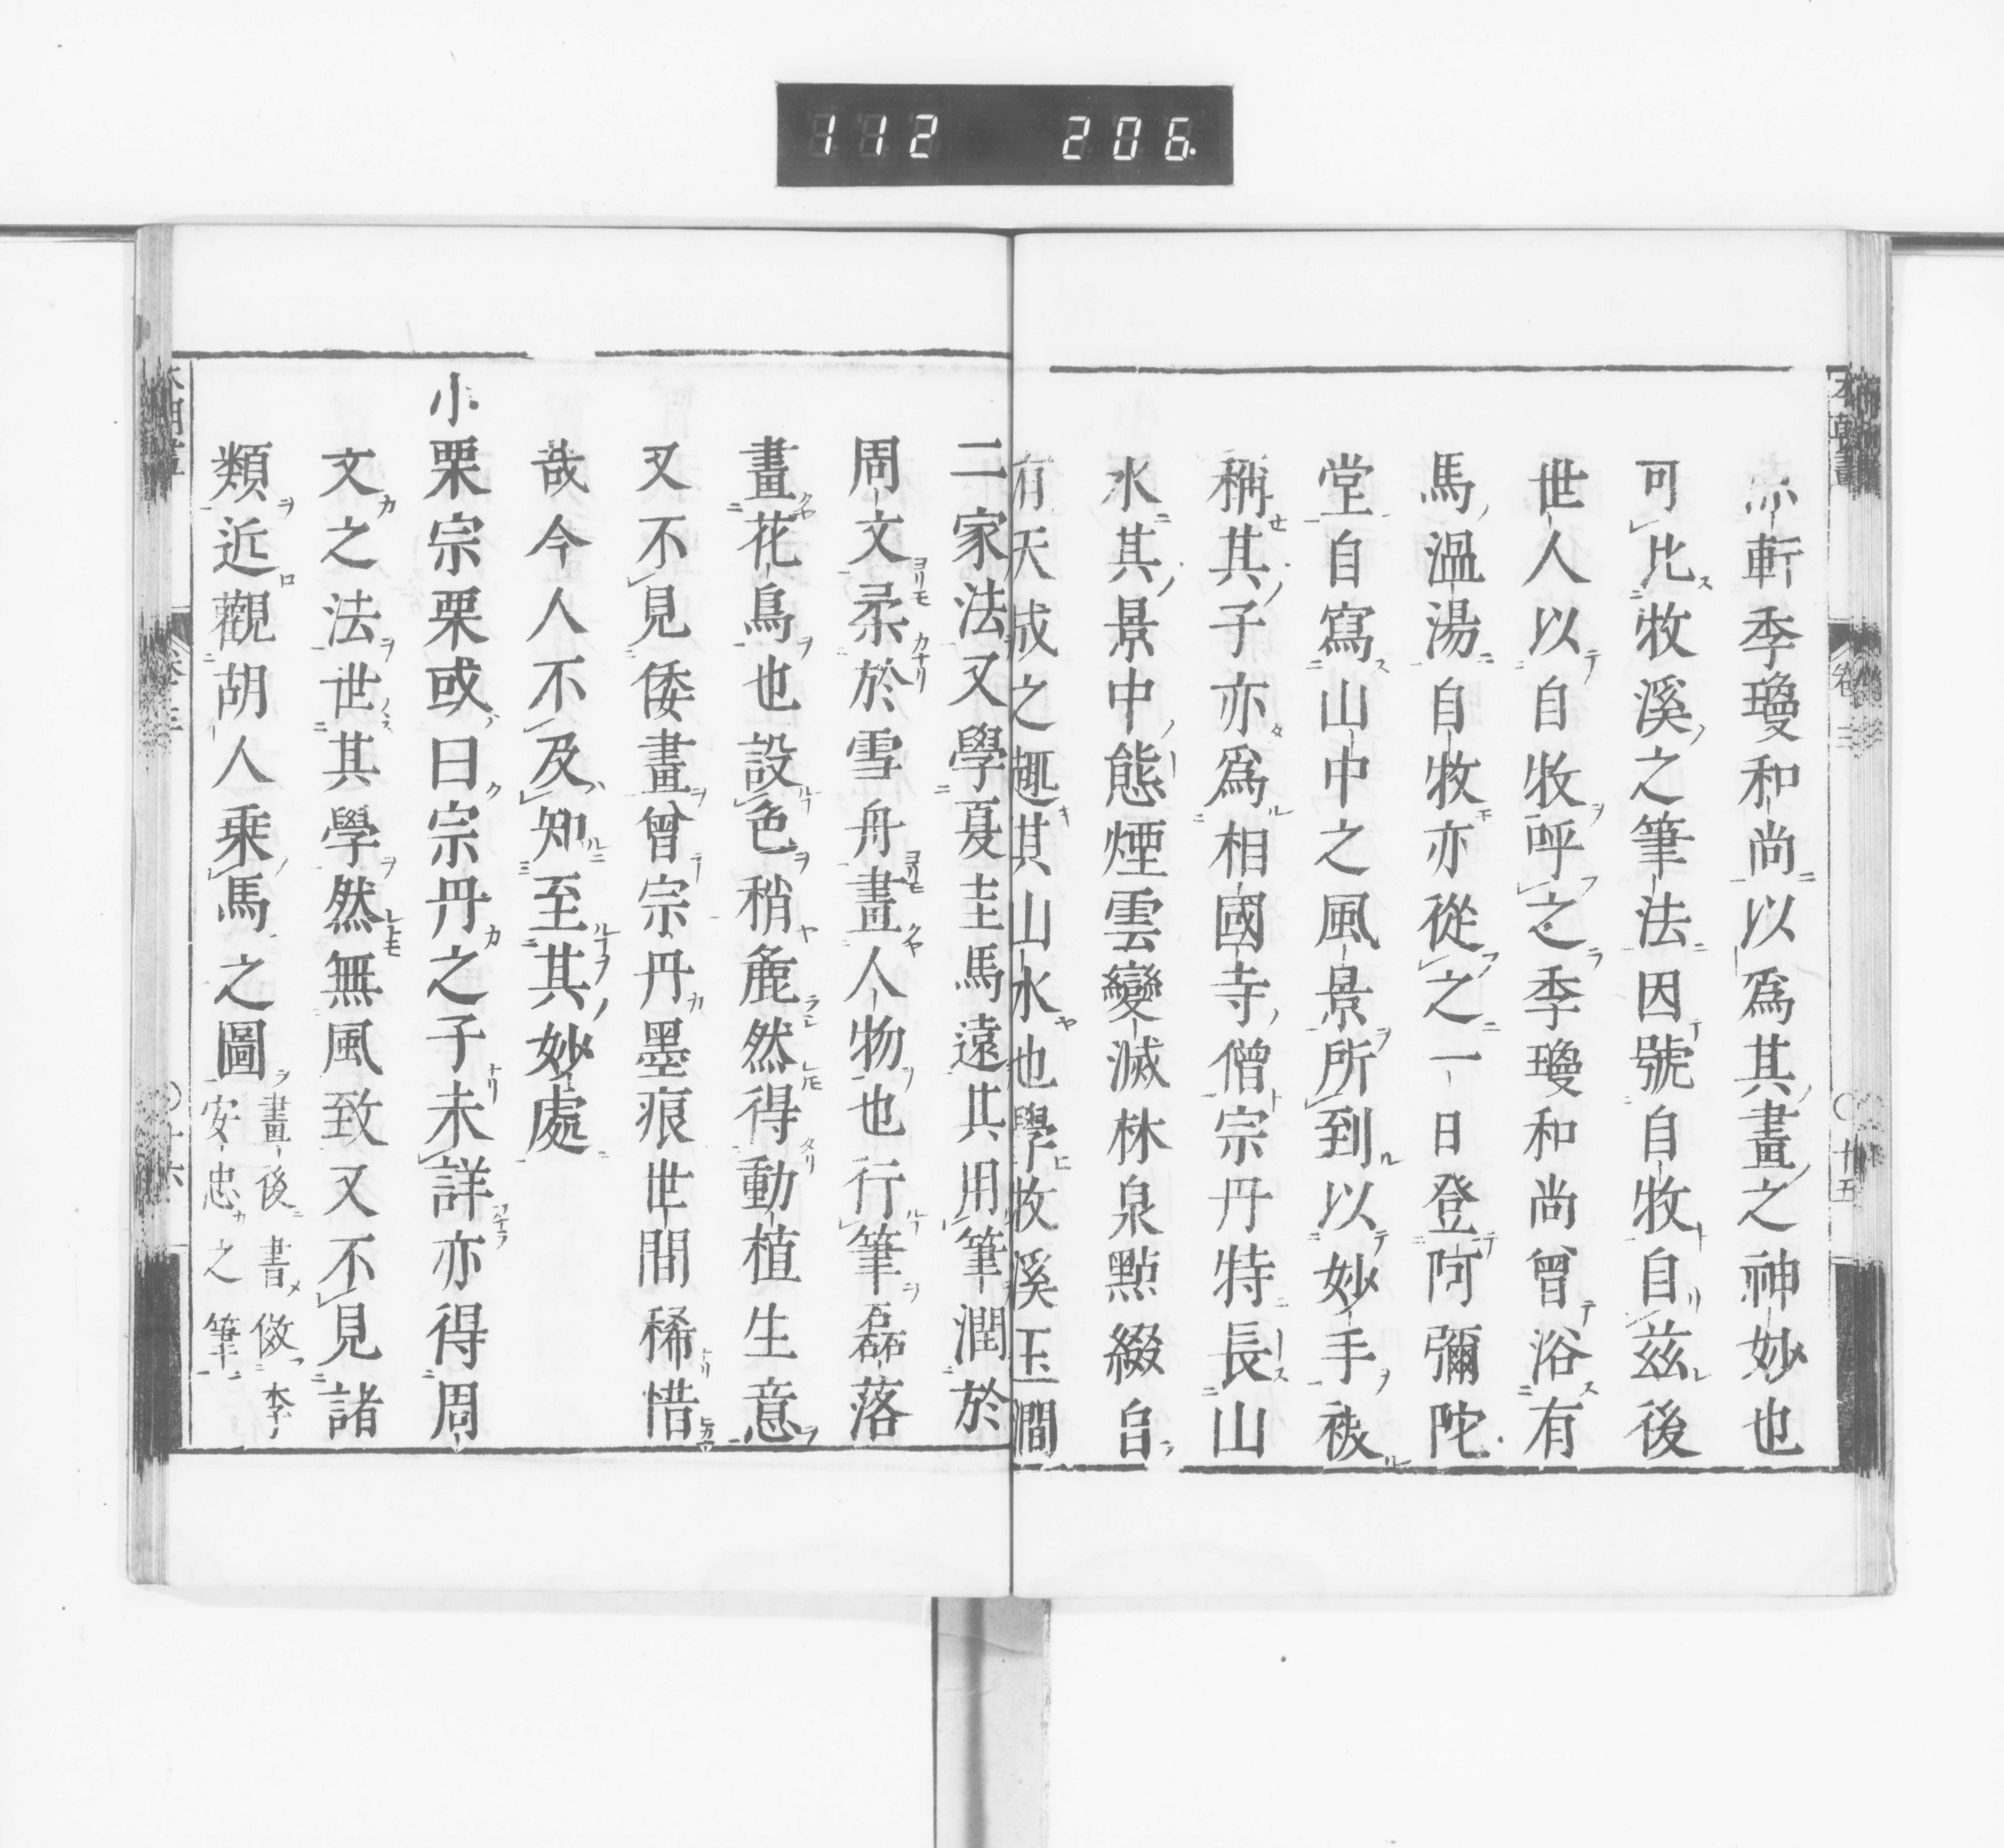 112 206.
軒季瓊和尚以爲其畫之神妙也
可比牧溪之筆法因號自牧自茲後
世人以自牧呼之季瓊和尚曾浴有
馬溫湯自牧亦從之一日登阿彌陀
堂自寫山中之風景所到以妙手被
稱其子亦爲相國寺僧宗丹特長山
水其景中態煙雲變滅林泉點綴自
有天成之趣其山水也學牧溪玉澗
二家法又學夏圭馬遠其用筆潤於
周文柔於雪舟畫人物也行筆磊落
畫花鳥也設色稍麁然得動植生意
又不見倭畫曾宗丹墨痕世間稀惜
哉今人不及知至其妙處
小栗宗栗或曰宗丹之子未詳亦得周
文之法世其學然無風致又不見諸
類近觀胡人乘馬之圖
畫後書倣李
安忠之筆